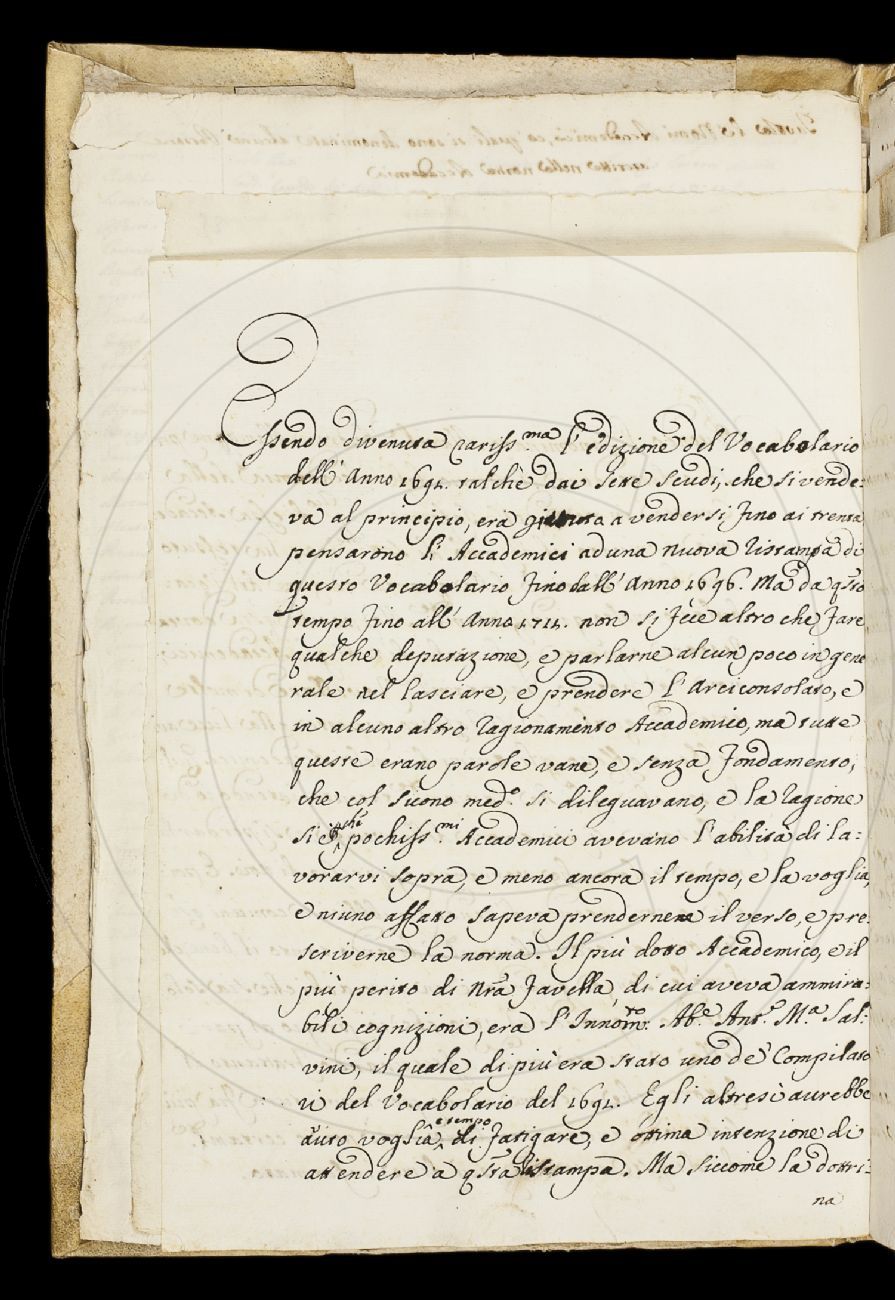 Essendo divenuta rariss.ma l'edizione del Vocabolario
dell'Anno 1691. talchè dai sette scudi, che si vende=
va al principio, era giunto a vendersi fino ai trenta
pensarono li Accademici ad una nuova ristampa di
questo Vocabolario fino dall'Anno 1696. Ma da qsto
tempo fino all'Anno 1714. non si fece altro che fare
qualche depurazione, e parlarne alcun poco in gene
rale nel lasciare, e prendere l'Arciconsolato, e
in alcuno altro ragionamento Accademico, ma tutte
queste erano parole vane, e senza fondamento,
che col suono med.o si dileguavano, e la ragione
si è, che pochiss.mi Accademici avevano l'abilità di la=
vorarvi sopra, e meno ancora il tempo, e la voglia,
e niuno affatto sapeva prenderne il verso, e pre=
scriverne la norma. Il più dotto Accademico, e il
più perito di nra favella, di cui aveva ammira=
bili cognizioni, era l' Ab.e Ant.o M.a Sal=
vini, il quale di più era stato uno de' Compilato
ri del Vocabolario del 1691. Egli altresì aurebbe
auto voglia, e tempo di fatigare, e ottima intenzione di
attendere a qsta ristampa. Ma siccome la dottri=
na